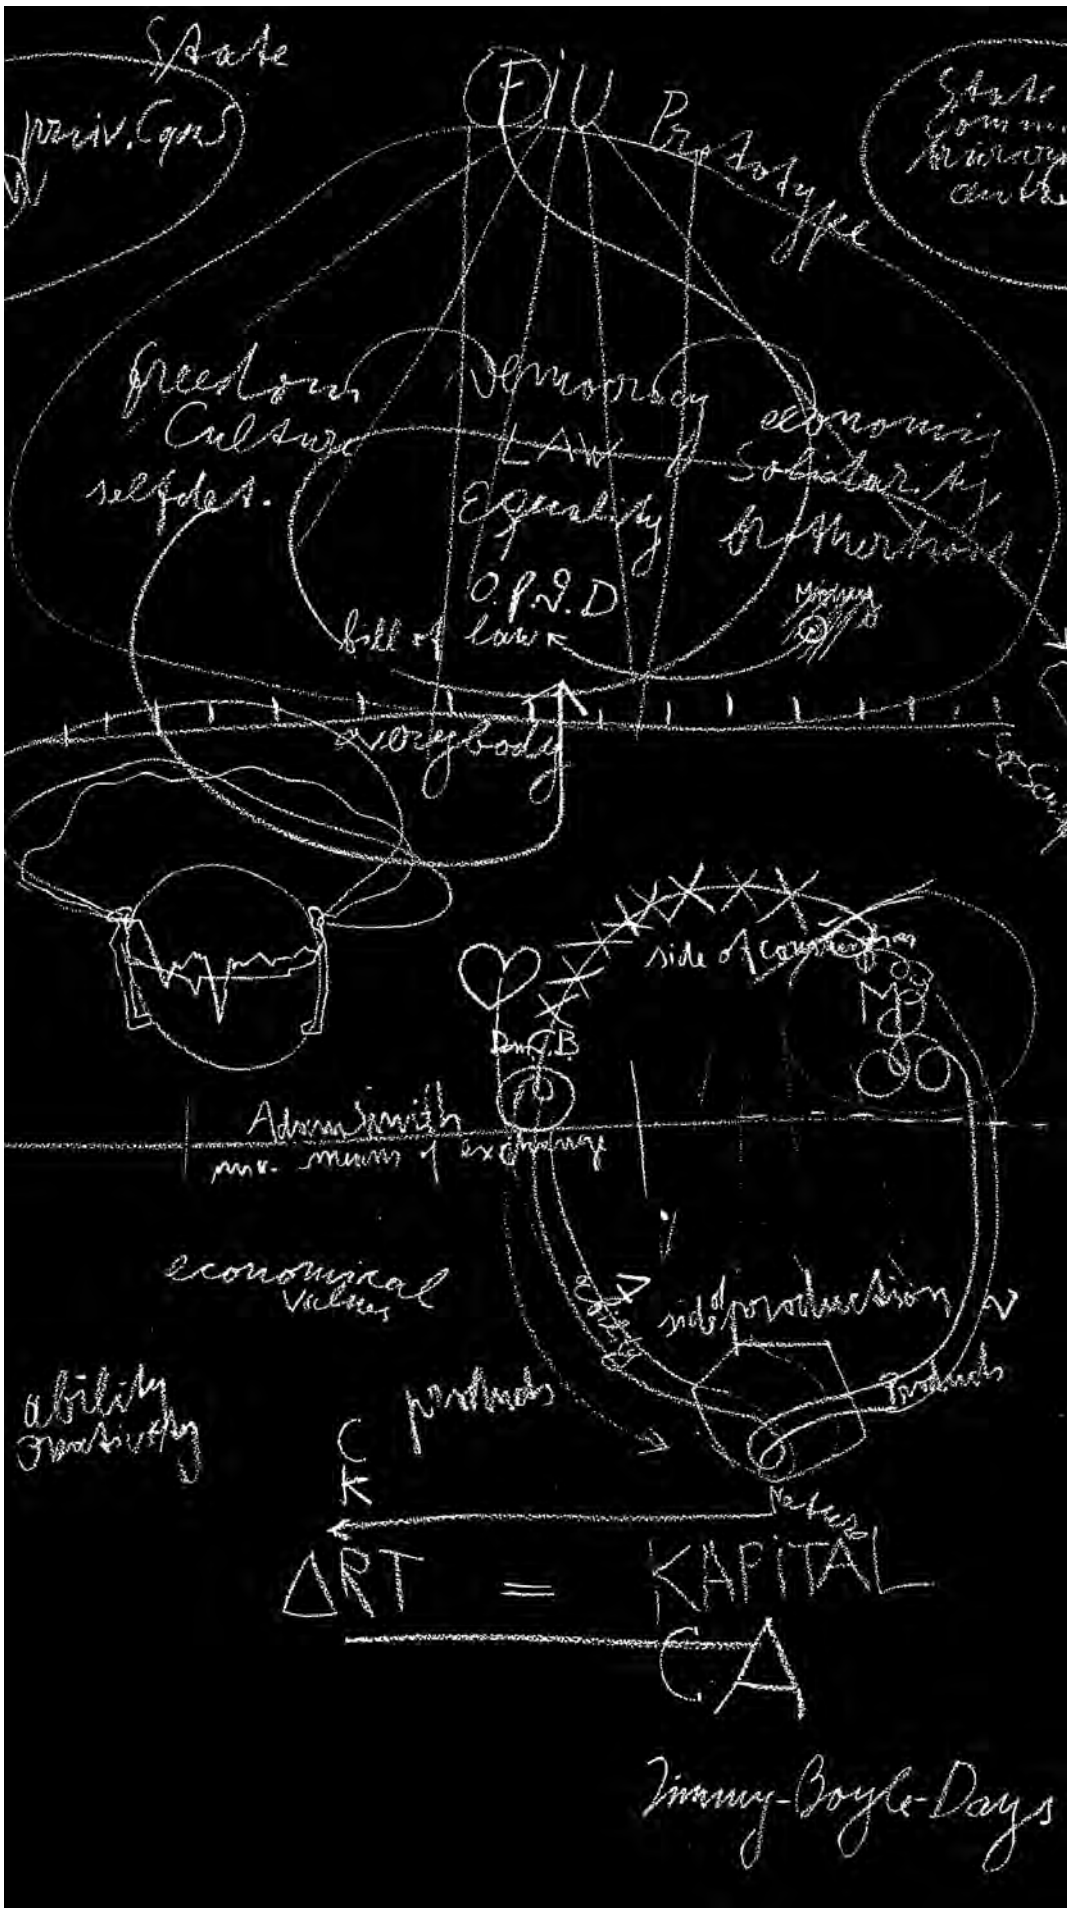 State
priv. Cap
FIU
Prototype
State
Comm.
freedom
Culture
selfdet.
Democracy
LAW
Equality
O.P.D.D
bill of law
economic
Solidarity
brotherhood
Money
everybody
side of consumption
M
Dem.C.B
Adam Smith
means of exchange
economical
Values
side of production
products
Products
ability
creativity
C
K
Nature
ART = KAPITAL
CA
Jimmy-Boyle-Days